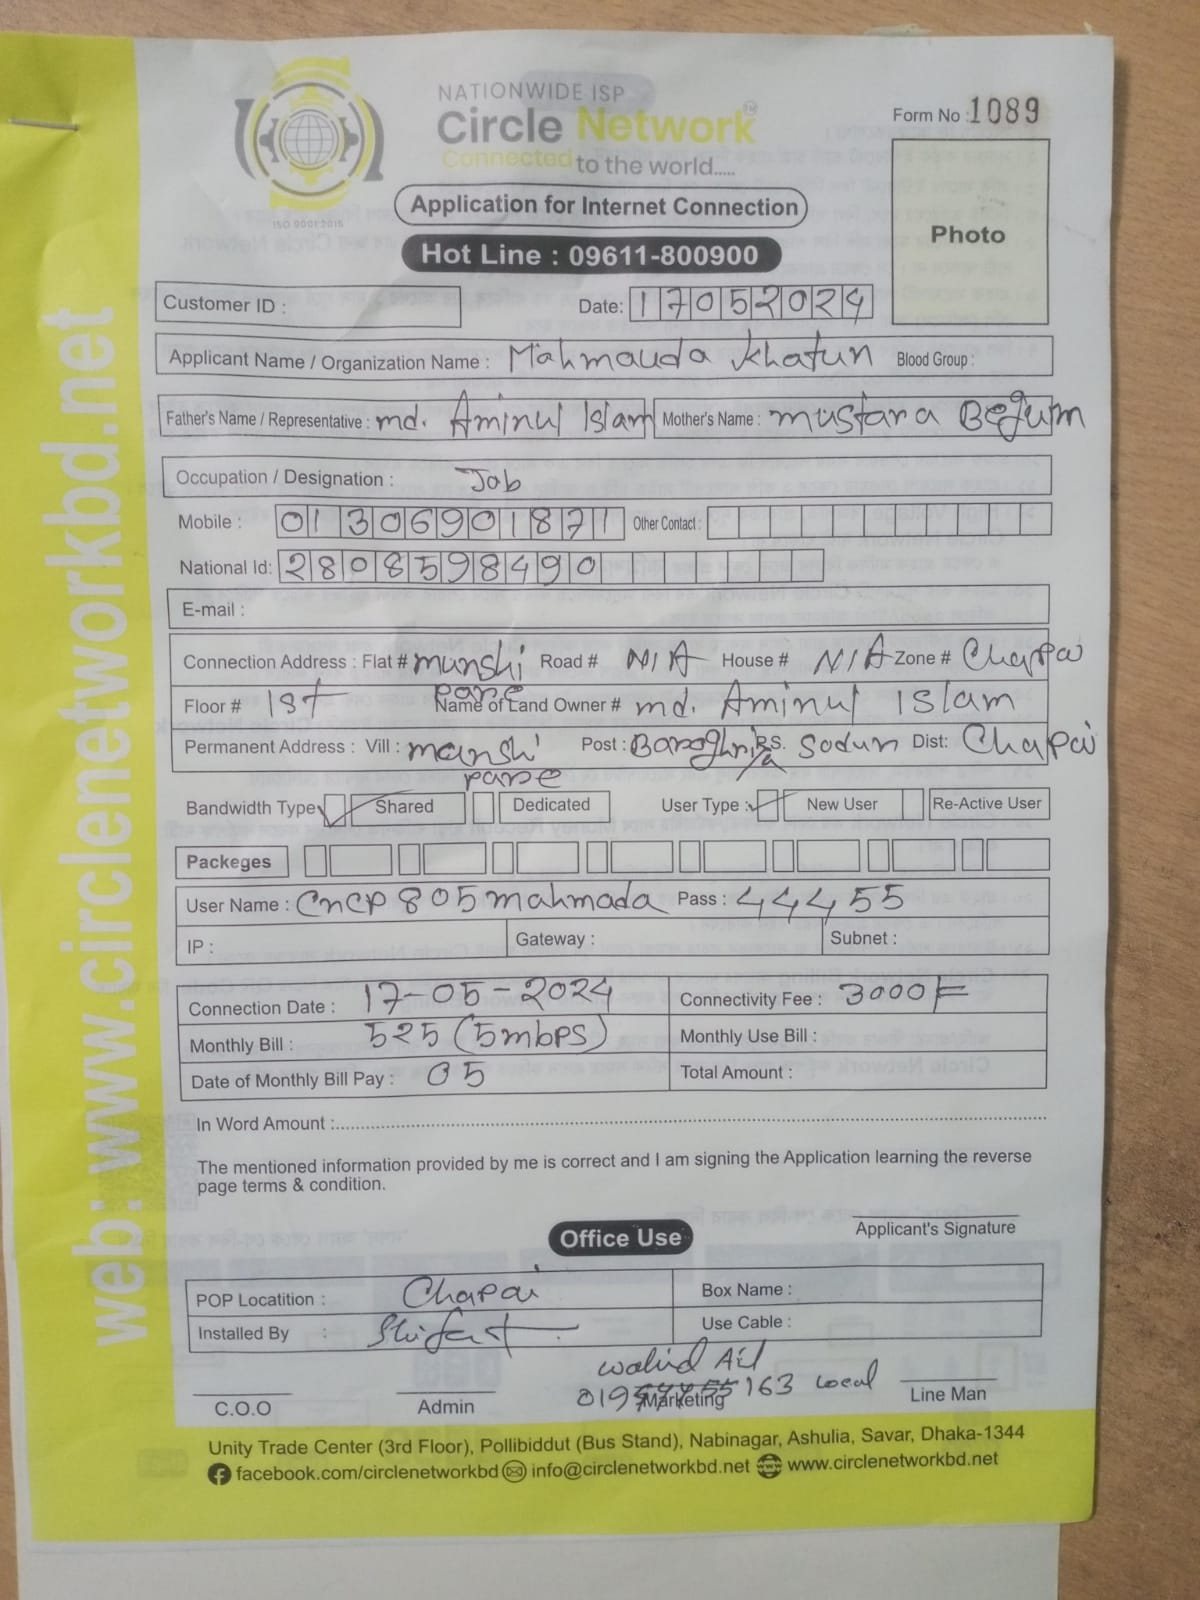 NATIONWIDE ISP
Circle Network™
Connected to the world.....
ISO 9001:2015
Form No : 1089
Photo
Application for Internet Connection
Hot Line : 09611-800900
Customer ID :
Date: 17052024
Applicant Name / Organization Name : Mahmauda Khatun Blood Group :
Father's Name / Representative : md. Aminul Islam Mother's Name : mustara Begum
Occupation / Designation : Job
Mobile : 01306901871 Other Contact :
National Id: 2808598490
E-mail :
Connection Address : Flat # munshi pare Road # N/A House # N/A Zone # Chapai
Floor # 1st Name of Land Owner # md. Aminul Islam
Permanent Address : Vill : munshi pare Post : P.S. Sodun Dist: Chapai
Bandwidth Type Shared Dedicated User Type : New User Re-Active User
Packeges
User Name : CnCP805mahmada Pass : 44455
IP : Gateway : Subnet :
Connection Date : 17-05-2024 Connectivity Fee : 3000/=
Monthly Bill : 525 (5mbps) Monthly Use Bill :
Date of Monthly Bill Pay : 05 Total Amount :
In Word Amount :
The mentioned information provided by me is correct and I am signing the Application learning the reverse
page terms & condition.
Applicant's Signature
Office Use
POP Locatition : Chapai Box Name :
Installed By : Shifat Use Cable :
walid
163 Local
C.O.O Admin Marketing Line Man
Unity Trade Center (3rd Floor), Pollibiddut (Bus Stand), Nabinagar, Ashulia, Savar, Dhaka-1344
facebook.com/circlenetworkbd info@circlenetworkbd.net www.circlenetworkbd.net
web: www.circlenetworkbd.net